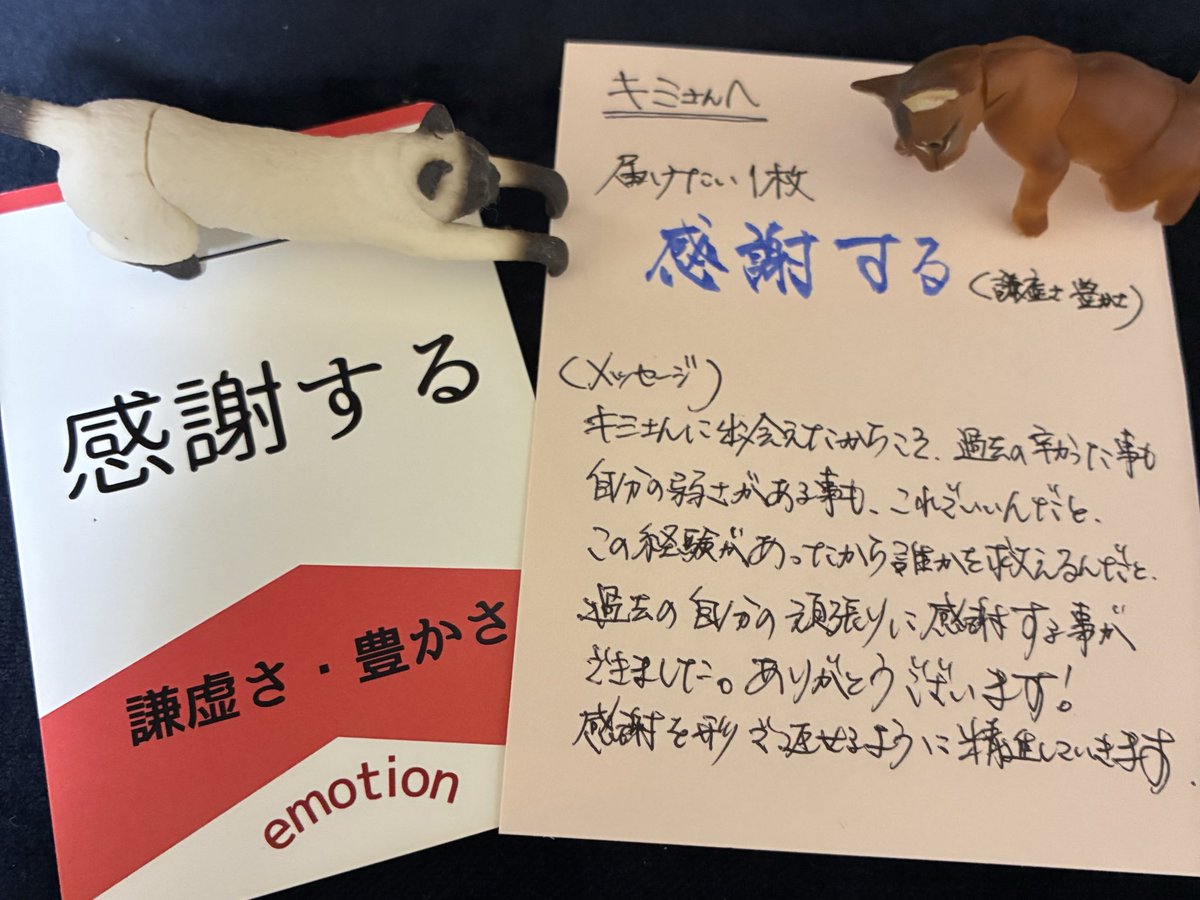 感謝する
謙虚さ・豊かさ
emotion
キミさんへ
届けたい1枚
感謝する（謙虚さ 豊かさ）
（メッセージ）
キミさんに出会えたからこそ、過去の辛かった事も
自分の弱さがある事も、これでいいんだと、
この経験があったから誰かを救えるんだと、
過去の自分の頑張りに感謝する事が
できました。ありがとうございます！
感謝を形で返せるように精進していきます.